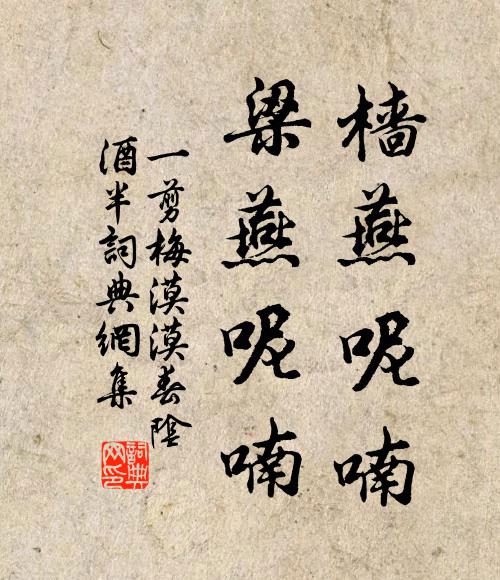 檣燕呢喃
梁燕呢喃
一剪梅漠漠春陰
酒半詞典網集
詞典
网印